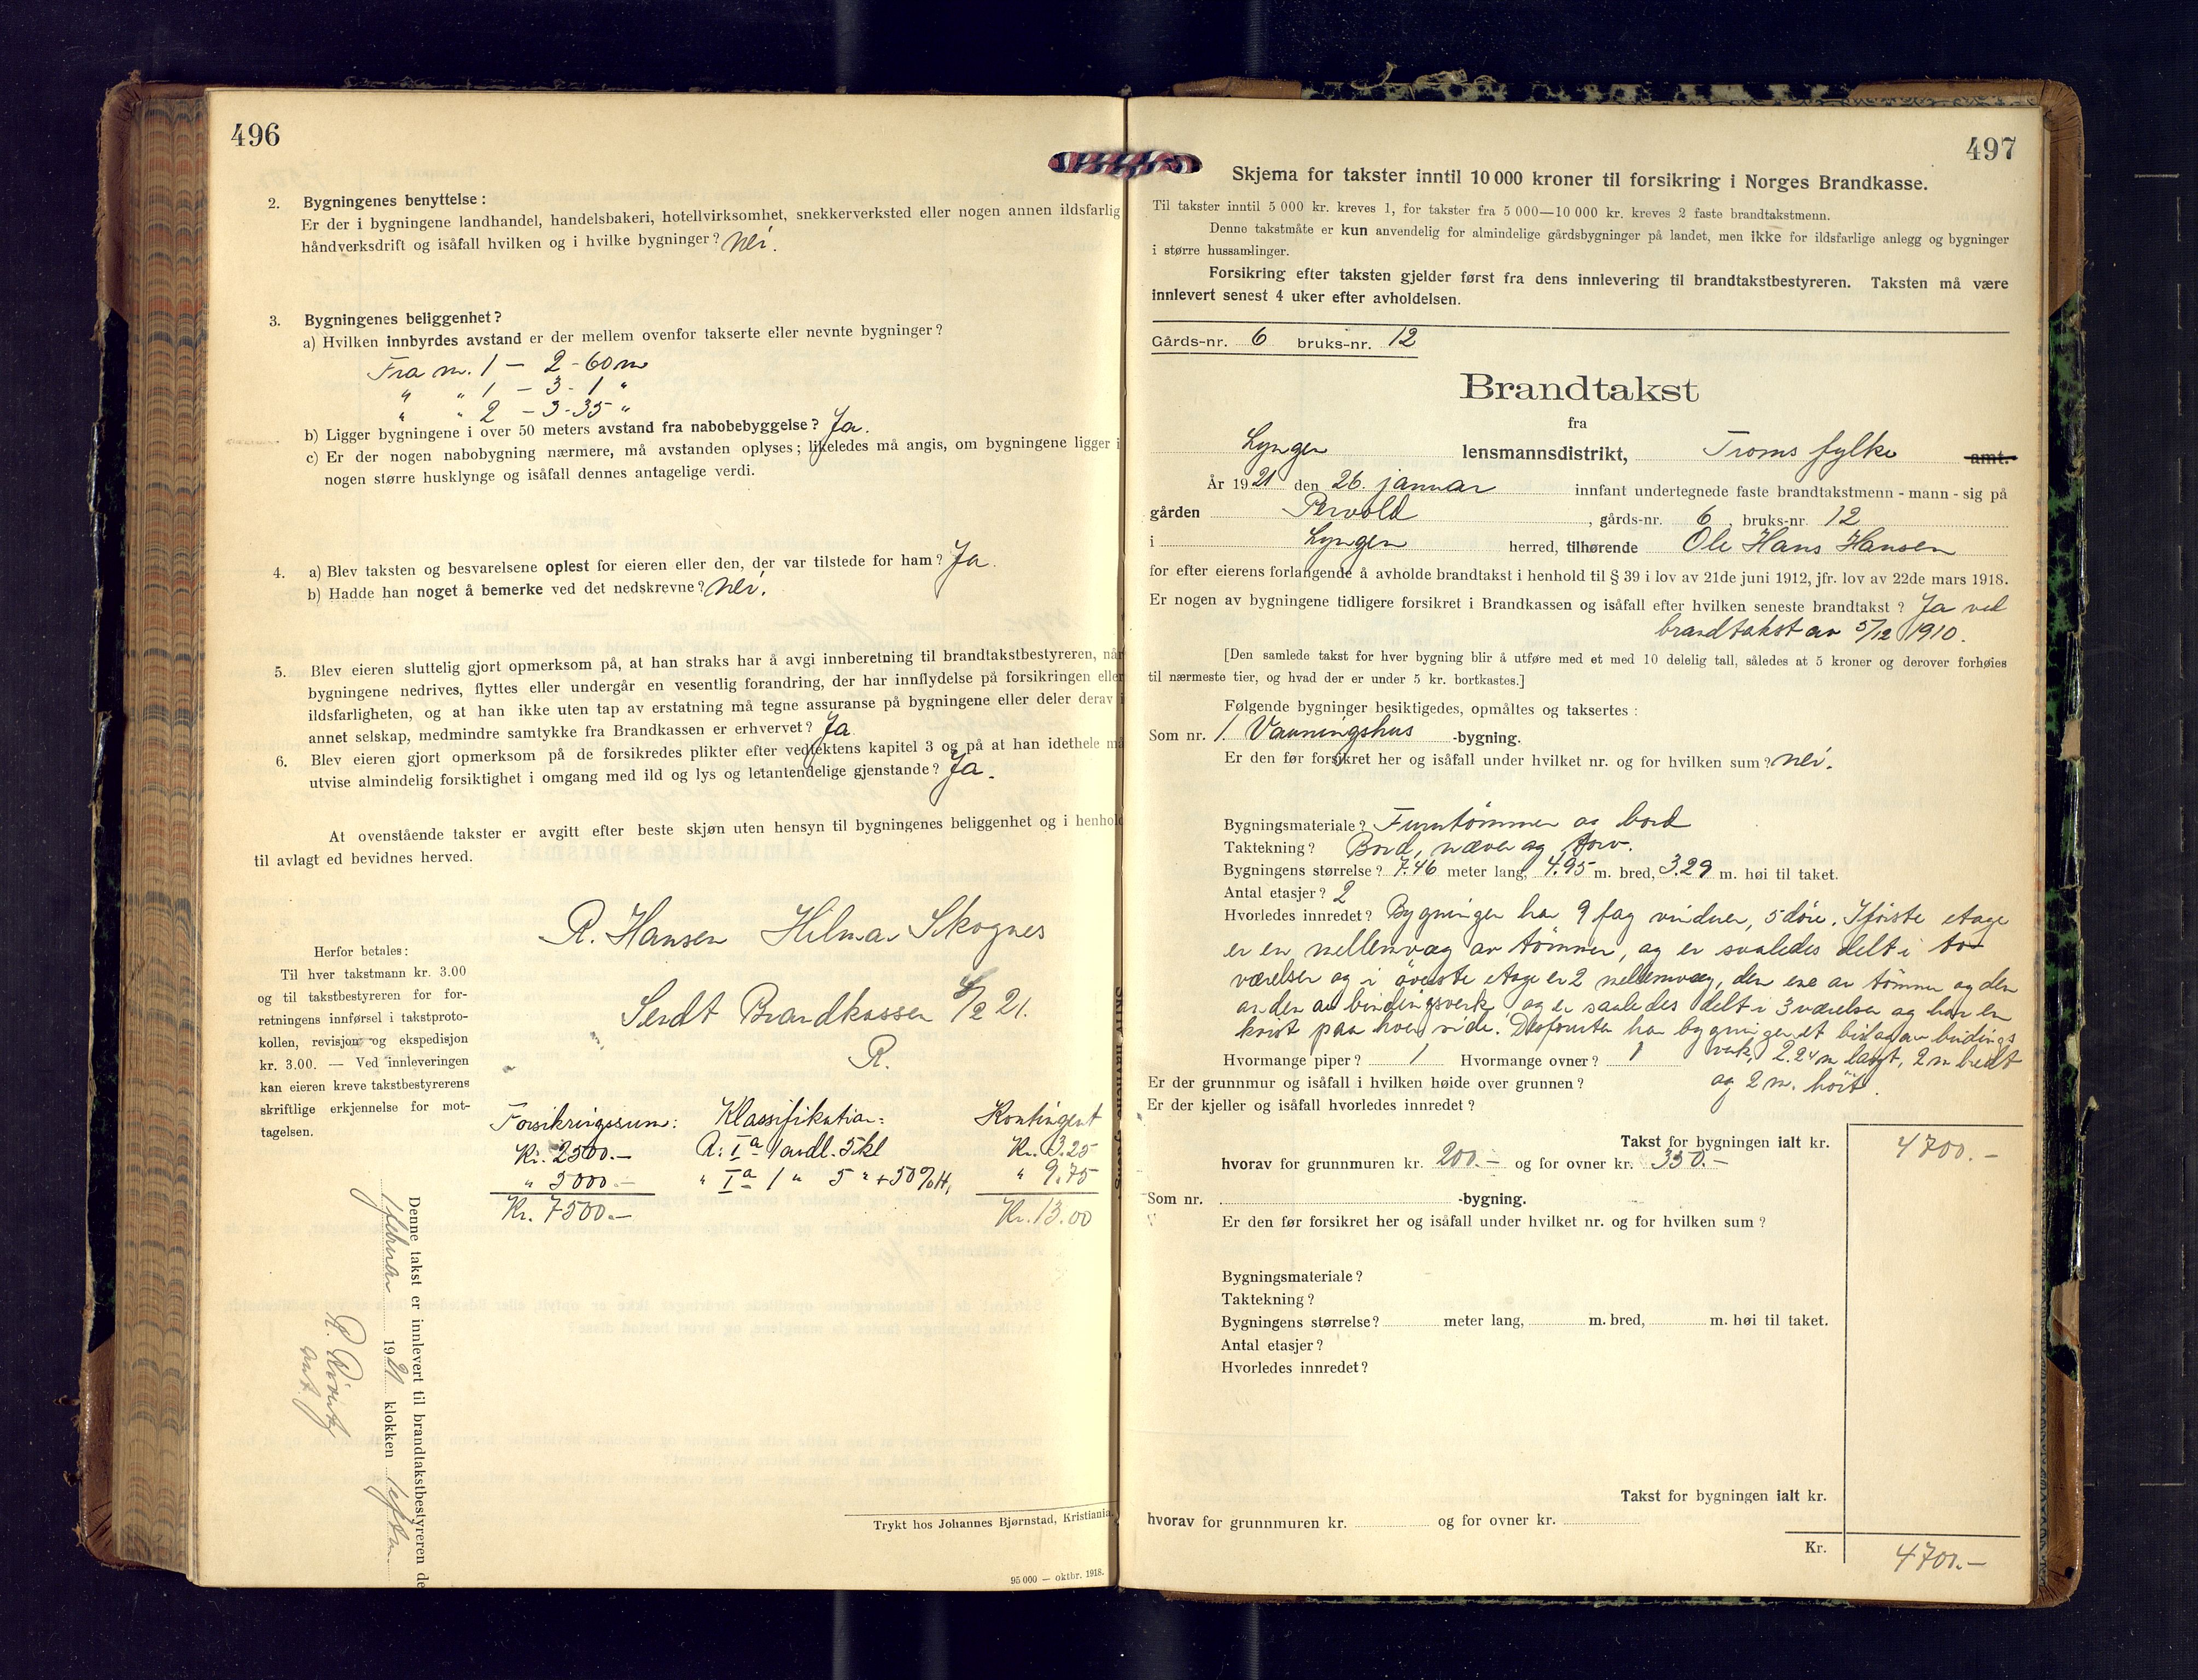 496
2. Bygningenes benyttelse:
Er der i bygningene landhandel, handelsbakeri, hotellvirksomhet, snekkerverksted eller nogen annen ildsfarlig
håndverksdrift og isåfall hvilken og i hvilke bygninger? Nei.
3. Bygningenes beliggenhet?
a) Hvilken innbyrdes avstand er der mellem ovenfor takserte eller nevnte bygninger?
Fra nr. 1 - 2 - 60 m
" " 1 - 3 - 1 "
" " 2 - 3 - 35 "
b) Ligger bygningene i over 50 meters avstand fra nabobebyggelse? Ja.
c) Er der nogen nabobygning nærmere, må avstanden oplyses; likeledes må angis, om bygningene ligger i
nogen større husklynge og isåfall dennes antagelige verdi.
4. a) Blev taksten og besvarelsene oplest for eieren eller den, der var tilstede for ham? Ja.
b) Hadde han noget å bemerke ved det nedskrevne? Nei.
5. Blev eieren sluttelig gjort opmerksom på, at han straks har å avgi innberetning til brandtakstbestyreren, når
bygningene nedrives, flyttes eller undergår en vesentlig forandring, der har innflydelse på forsikringen eller
ildsfarligheten, og at han ikke uten tap av erstatning må tegne assuranse på bygningene eller deler derav i
annet selskap, medmindre samtykke fra Brandkassen er erhvervet? Ja
6. Blev eieren gjort opmerksom på de forsikredes plikter efter vedtektens kapitel 3 og på at han idethele må
utvise almindelig forsiktighet i omgang med ild og lys og letantendelige gjenstande? Ja.
At ovenstående takster er avgitt efter beste skjøn uten hensyn til bygningenes beliggenhet og i henhold
til avlagt ed bevidnes herved.
R. Hansen Hilmar Skognes
Herfor betales:
Til hver takstmann kr. 3.00
og til takstbestyreren for for-
retningens innførsel i takstproto-
kollen, revisjon og ekspedisjon
kr. 3.00. — Ved innleveringen
kan eieren kreve takstbestyrerens
skriftlige erkjennelse for mot-
tagelsen.
Sendt Brandkassen /2 21.
R.
Forsikringssum: Klassifikation: Kontingent
Kr. 2500.- A: Ia 1 landl. 5 kl Kr. 3.25
" 5000.- " Ia 1 " 5 " + 50% H, " 9.75
Kr. 7500.- Kr. 13.00
Denne takst er innlevert til brandtakstbestyreren de
1 februar 1921 klokken 1 eftm.
Trykt hos Johannes Bjørnstad, Kristiania.
95 000 — oktbr. 1918.
497
Skjema for takster inntil 10 000 kroner til forsikring i Norges Brandkasse.
Til takster inntil 5 000 kr. kreves 1, for takster fra 5 000—10 000 kr. kreves 2 faste brandtakstmenn.
Denne takstmåte er kun anvendelig for almindelige gårdsbygninger på landet, men ikke for ildsfarlige anlegg og bygninger
i større hussamlinger.
Forsikring efter taksten gjelder først fra dens innlevering til brandtakstbestyreren. Taksten må være
innlevert senest 4 uker efter avholdelsen.
Gårds-nr. 6 bruks-nr. 12
Brandtakst
fra
Lyngen lensmannsdistrikt, Troms fylke amt.
År 1921 den 26. januar innfant undertegnede faste brandtakstmenn - mann - sig på
gården Pervold, gårds-nr. 6, bruks-nr. 12
i Lyngen herred, tilhørende Ole Hans Hansen
for efter eierens forlangende å avholde brandtakst i henhold til § 39 i lov av 21de juni 1912, jfr. lov av 22de mars 1918.
Er nogen av bygningene tidligere forsikret i Brandkassen og isåfall efter hvilken seneste brandtakst? Ja ved
brandtakst av 5/12 1910.
[Den samlede takst for hver bygning blir å utføre med et med 10 delelig tall, således at 5 kroner og derover forhøies
til nærmeste tier, og hvad der er under 5 kr. bortkastes.]
Følgende bygninger besiktigedes, opmåltes og taksertes:
Som nr. 1. Vaaningshus -bygning.
Er den før forsikret her og isåfall under hvilket nr. og for hvilken sum? Nei.
Bygningsmateriale? Furutømmer og bord
Taktekning? Bord, næver og torv.
Bygningens størrelse? 7.46 meter lang, 4.95 m. bred, 3.29 m. høi til taket.
Antal etasjer? 2
Hvorledes innredet? Bygningen har 9 fag vinduer, 5 døre. I første etage
er en mellemvæg av tømmer, og er saaledes delt i to
værelser og i øverste etage er 2 mellemvæg, den ene av tømmer og den
anden av bindingsverk, og er saaledes delt i 3 værelser og har en
kvist paa hver side. Desforuten har bygningen et bislag av bindings
verk, 2.24 m langt, 2 m bredt
og 2 m. høit.
Hvormange piper? 1 Hvormange ovner? 1
Er der grunnmur og isåfall i hvilken høide over grunnen?
Er der kjeller og isåfall hvorledes innredet?
Takst for bygningen ialt kr. 4700.-
hvorav for grunnmuren kr. 200.- og for ovner kr. 350.-
Som nr. -bygning.
Er den før forsikret her og isåfall under hvilket nr. og for hvilken sum?
Bygningsmateriale?
Taktekning?
Bygningens størrelse? meter lang, m. bred, m. høi til taket.
Antal etasjer?
Hvorledes innredet?
Takst for bygningen ialt kr.
hvorav for grunnmuren kr. og for ovner kr.
Kr. 4700.-